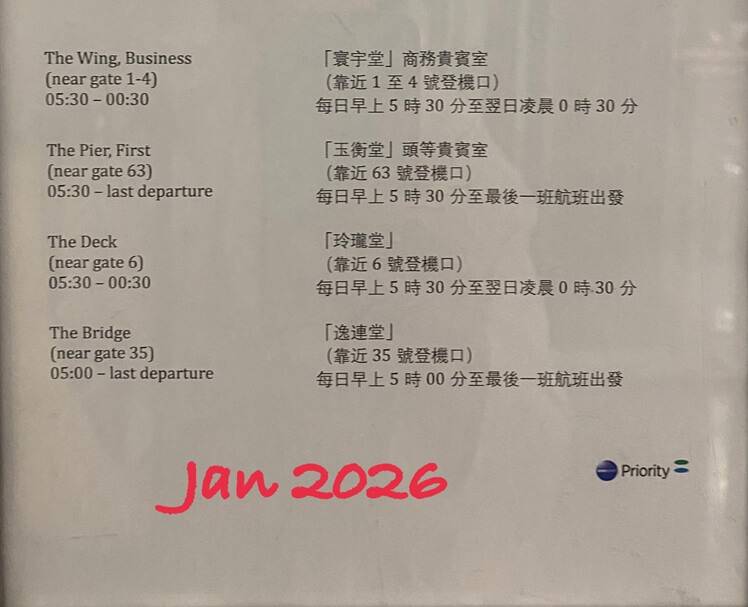 The Wing, Business
(near gate 1-4)
05:30 – 00:30
「寰宇堂」商務貴賓室
（靠近 1 至 4 號登機口）
每日早上 5 時 30 分至翌日凌晨 0 時 30 分
The Pier, First
(near gate 63)
05:30 – last departure
「玉衡堂」頭等貴賓室
（靠近 63 號登機口）
每日早上 5 時 30 分至最後一班航班出發
The Deck
(near gate 6)
05:30 – 00:30
「玲瓏堂」
（靠近 6 號登機口）
每日早上 5 時 30 分至翌日凌晨 0 時 30 分
The Bridge
(near gate 35)
05:00 – last departure
「逸連堂」
（靠近 35 號登機口）
每日早上 5 時 00 分至最後一班航班出發
Jan 2026
Priority